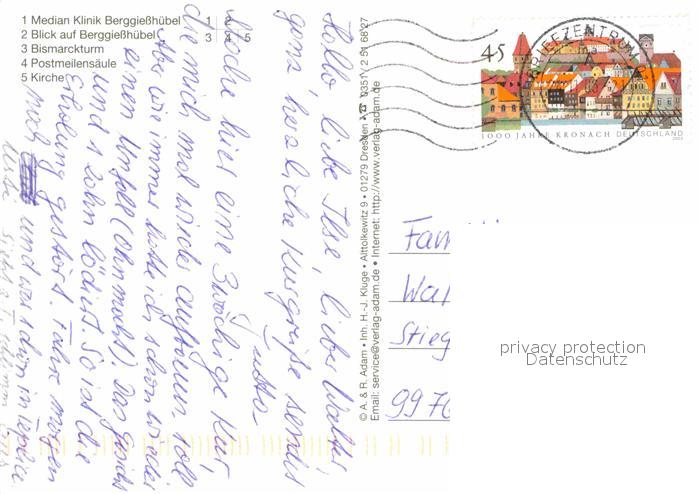 1 Median Klinik Berggießhübel
2 Blick auf Berggießhübel
3 Bismarckturm
4 Postmeilensäule
5 Kirche
1 2
3 4 5
Hallo, liebe Ilse, lieber Walter,
ganz herzliche Kurgrüße sendet
Jutta
Mache hier eine 3wöchige Kur,
die mich mal wieder aufbauen soll
Aber wie immer hatte ich schon wieder
einen Unfall (Ohnmacht) Das Gesicht
und 1 Zahn lädiert. So ist die
Erholung gestört. Fahre morgen
nach und war schon in
© A. & R. Adam • Inh. H.-J. Kluge • Alttolkewitz 9 • 01279 Dresden • ☎ 0351/ 2 51 66 27
Email: service@verlag-adam.de • Internet: http://www.verlag-adam.de
45
BRIEFZENTRUM
1000 JAHRE KRONACH DEUTSCHLAND
2003
Fam
Wal
Stieg
privacy protection
Datenschutz